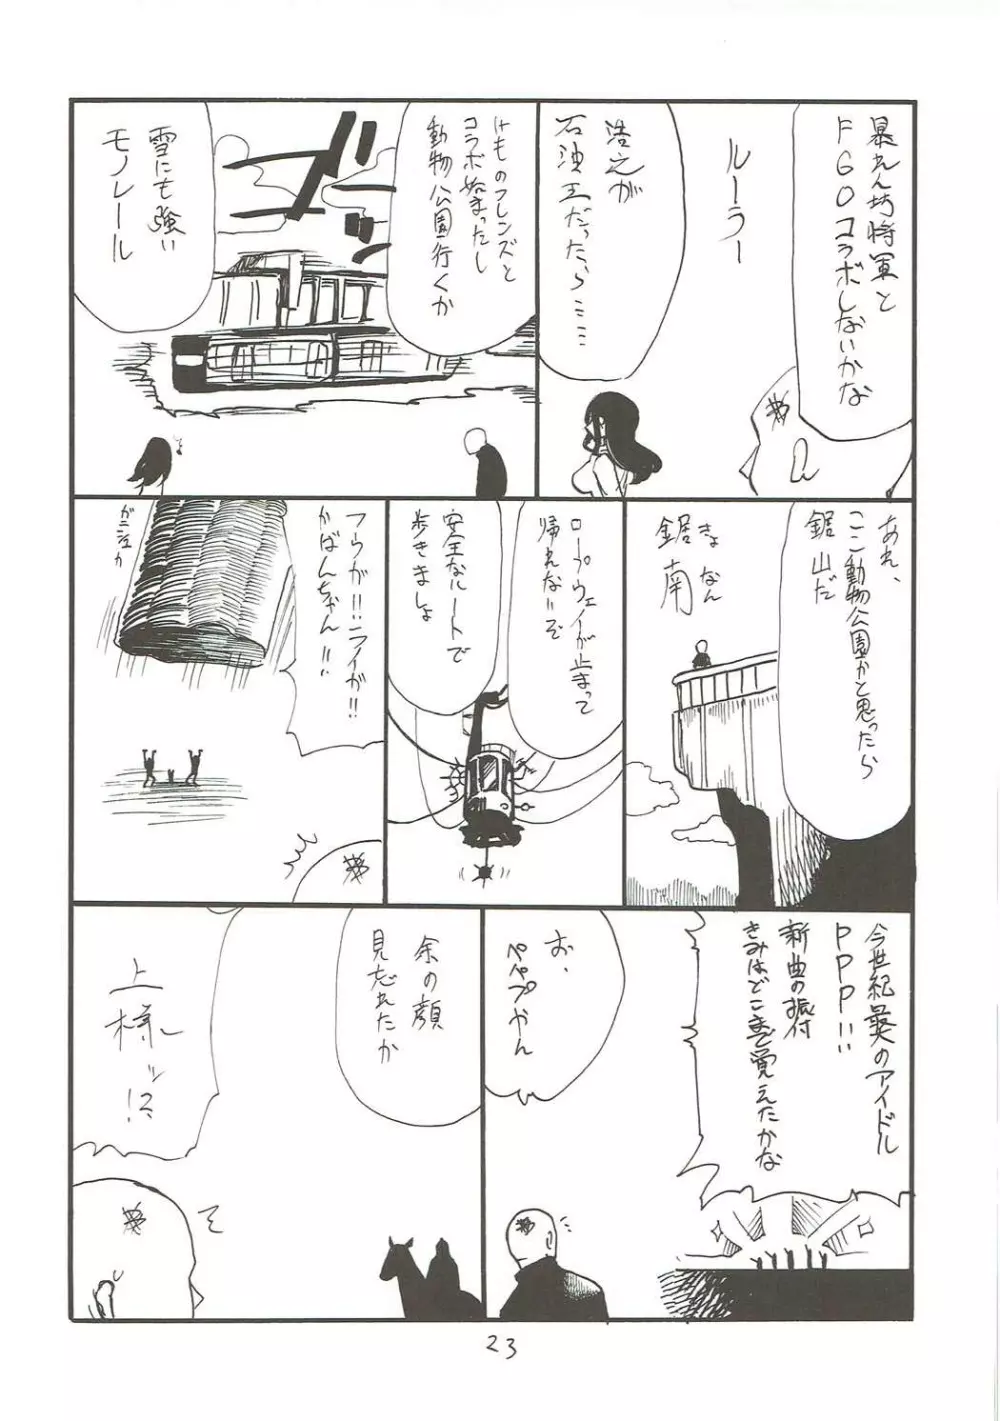 暴れん坊将軍と
FGOコラボしないかな
ルーラー
浩之が
石油王だったら……
けものフレンズと
コラボ始まったし
動物公園行くか
雪にも強い
モノレール
あれ、
ここ動物公園かと思ったら
鋸山だ
きょなん
鋸南
ロープウェイが止まって
帰れないぞ
安全なルートで
歩きましょ
フウが!!ライが!!
かばんちゃん!!
ガニュカ
今世紀最大のアイドル
PPP!!
新曲の振付
きみはどこまで覚えたかな
お、
ペパプやん
余の顔
見忘れたか
上様ッ!?
23